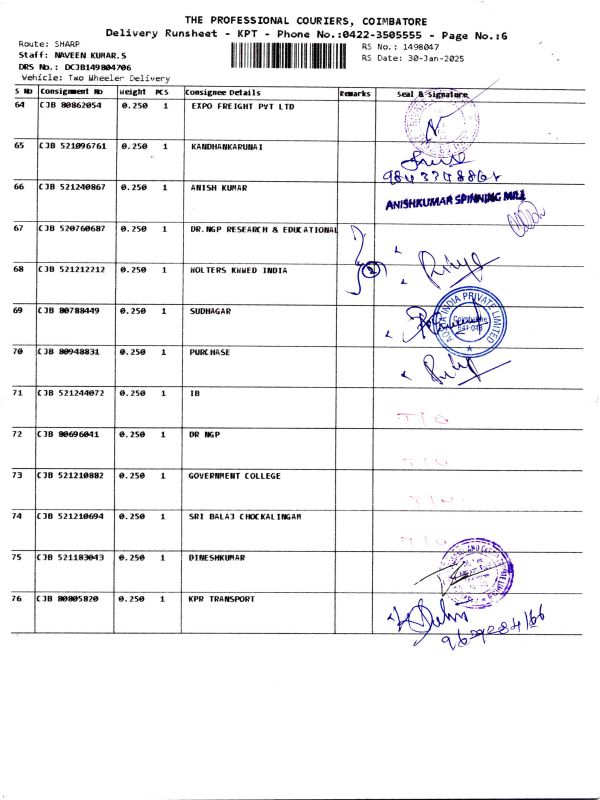 THE PROFESSIONAL COURIERS, COIMBATORE
Delivery Runsheet - KPT - Phone No.:0422-3505555 - Page No.:6
Route: SHARP
RS No.: 1498047
Staff: NAVEEN KUMAR.S
RS Date: 30-Jan-2025
DRS No.: DCJB149804706
Vehicle: Two Wheeler Delivery
S No Consignment No Weight PCS Consignee Details Remarks Seal & Signature
64 CJB 80862054 0.250 1 EXPO FREIGHT PVT LTD
65 CJB 521096761 0.250 1 KANDHANKARUNAI
66 CJB 521240867 0.250 1 ANISH KUMAR
ANISHKUMAR SPINNING MILL
67 CJB 520760687 0.250 1 DR.NGP RESEARCH & EDUCATIONAL
68 CJB 521212212 0.250 1 WOLTERS KHWED INDIA
2
69 CJB 80788449 0.250 1 SUDHAGAR
INDIA PRIVATE LIMITED
Coimbatore
70 CJB 80948831 0.250 1 PURCHASE
71 CJB 521244072 0.250 1 IB
72 CJB 80696041 0.250 1 DR NGP
73 CJB 521210882 0.250 1 GOVERNMENT COLLEGE
74 CJB 521210694 0.250 1 SRI BALAJ CHOCKALINGAM
75 CJB 521183043 0.250 1 DINESHKUMAR
76 CJB 80805820 0.250 1 KPR TRANSPORT